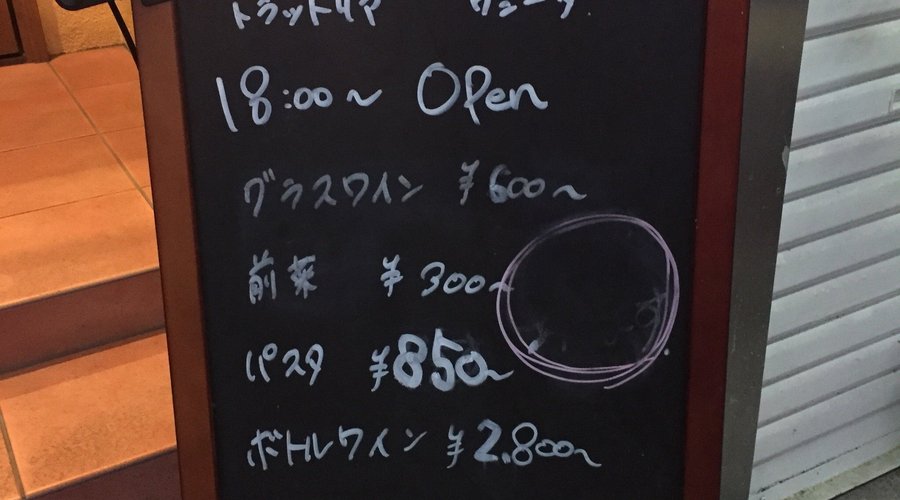 トラットリア
18:00〜 Open
グラスワイン ¥600〜
前菜 ¥300〜
パスタ ¥850〜
ボトルワイン ¥2,800〜